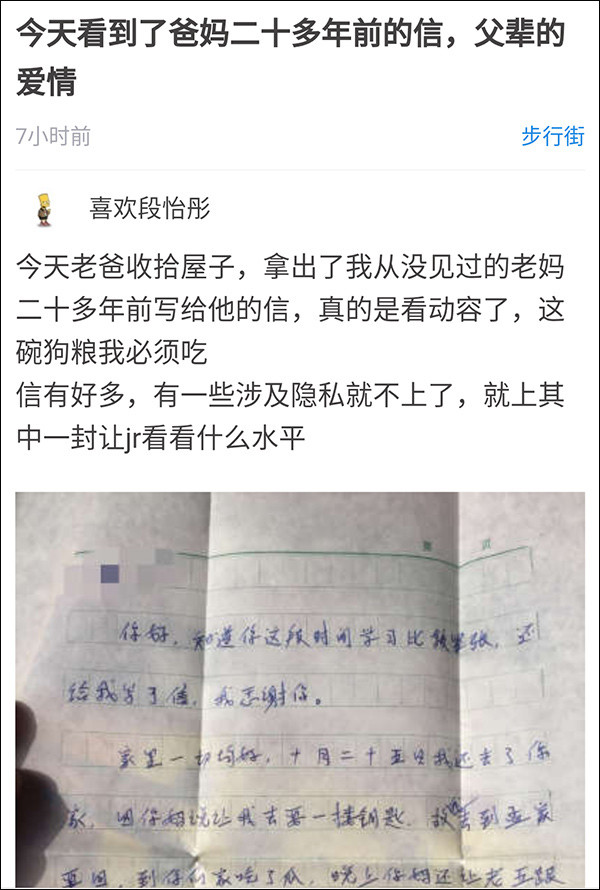 今天看到了爸妈二十多年前的信，父辈的
爱情
7小时前
步行街
喜欢段怡彤
今天老爸收拾屋子，拿出了我从没见过的老妈
二十多年前写给他的信，真的是看动容了，这
碗狗粮我必须吃
信有好多，有一些涉及隐私就不上了，就上其
中一封让jr看看什么水平
第 页
你好，知道你这段时间学习比较紧张，还
给我写了信，我感谢你。
家里一切均好，十月二十五日我还去了你
家，因你妈说让我去要一搂钥匙，故去到亚家
亚日，到你们家吃了瓜，晚上你妈还让老五跟